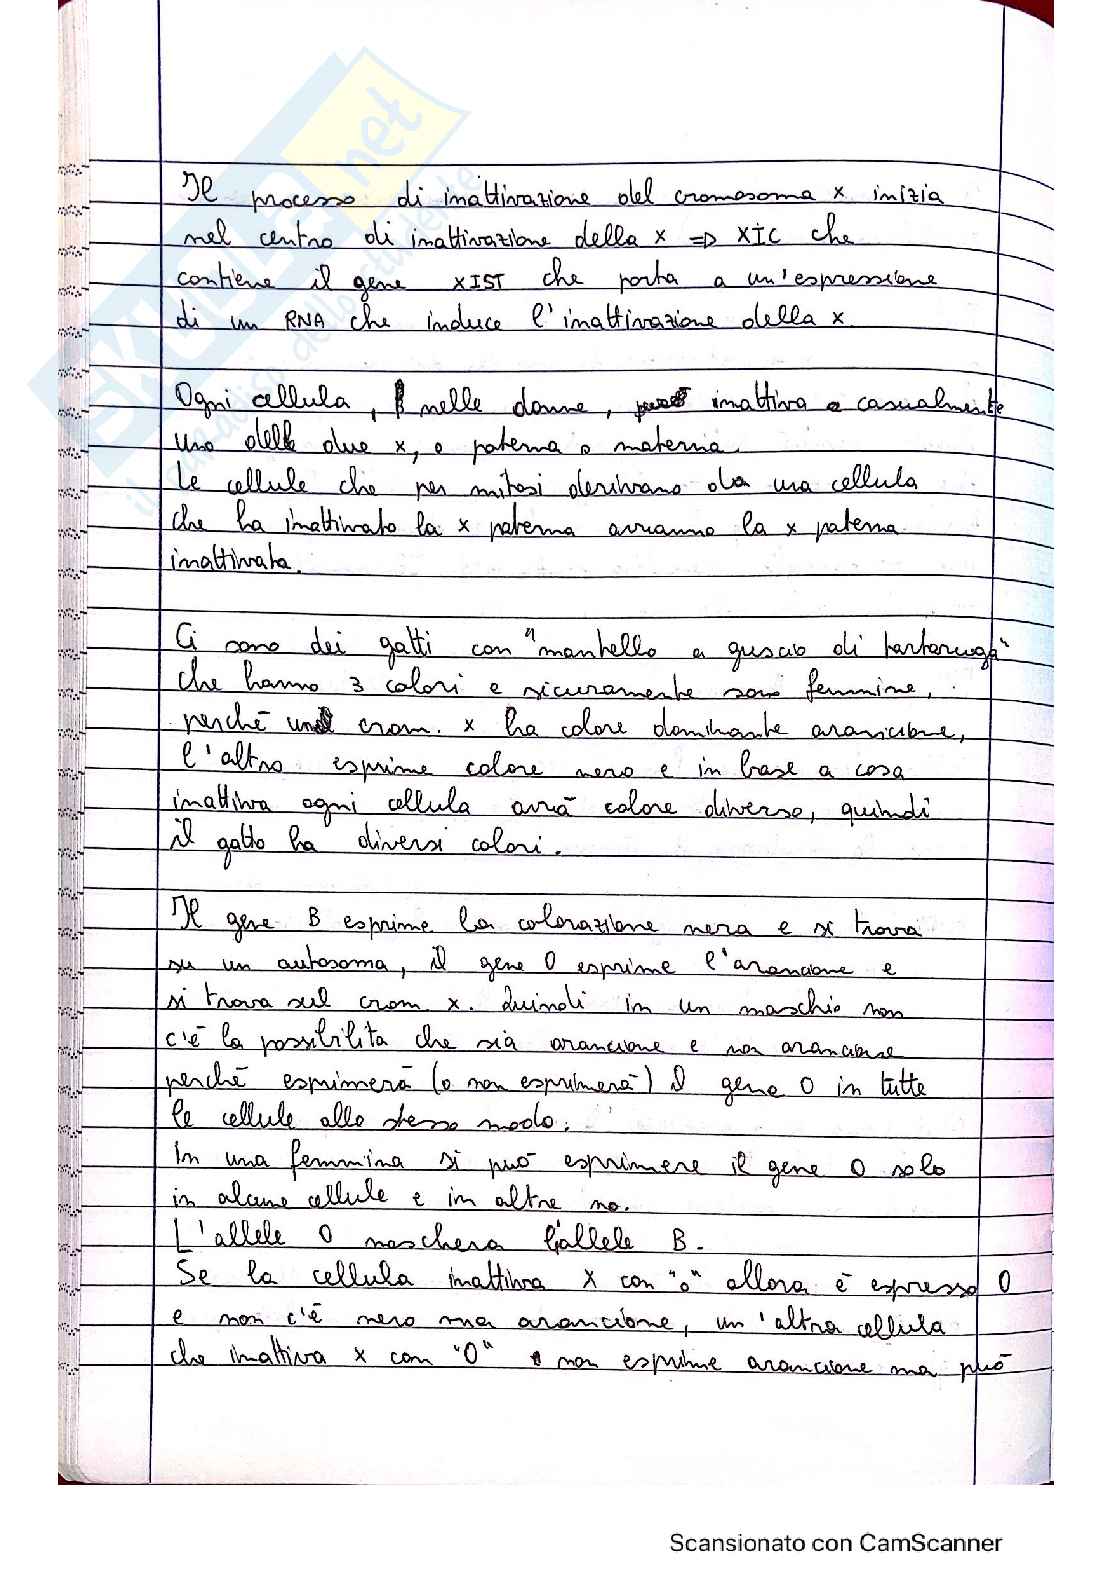 Il processo di inattivazione del cromosoma x inizia
nel centro di inattivazione della x => XIC che
contiene il gene XIST che porta a un'espressione
di un RNA che induce l'inattivazione della x
Ogni cellula, nelle donne, inattiva casualmente
una delle due x, o paterna o materna.
Le cellule che per mitosi derivano da una cellula
che ha inattivato la x paterna avranno la x paterna
inattivata.
Ci sono dei gatti con "mantello a guscio di tartaruga"
che hanno 3 colori e sicuramente sono femmine,
perchè un crom. x ha colore dominante arancione,
l'altro esprime colore nero e in base a cosa
inattiva ogni cellula avrà colore diverso, quindi
il gatto ha diversi colori.
Il gene B esprime la colorazione nera e si trova
su un autosoma, il gene O esprime l'arancione e
si trova sul crom x. Quindi in un maschio non
c'è la possibilita che sia arancione e non arancione
perchè esprimerà (o non esprimerà) il gene O in tutte
le cellule allo stesso modo.
In una femmina si può esprimere il gene O solo
in alcune cellule e in altre no.
L'allele O maschera l'allele B.
Se la cellula inattiva X con "o" allora è espresso O
e non c'è nero ma arancione, un'altra cellula
che inattiva x con "O" non esprime arancione ma può
skuola.net
il paradiso dello studente
Scansionato con CamScanner